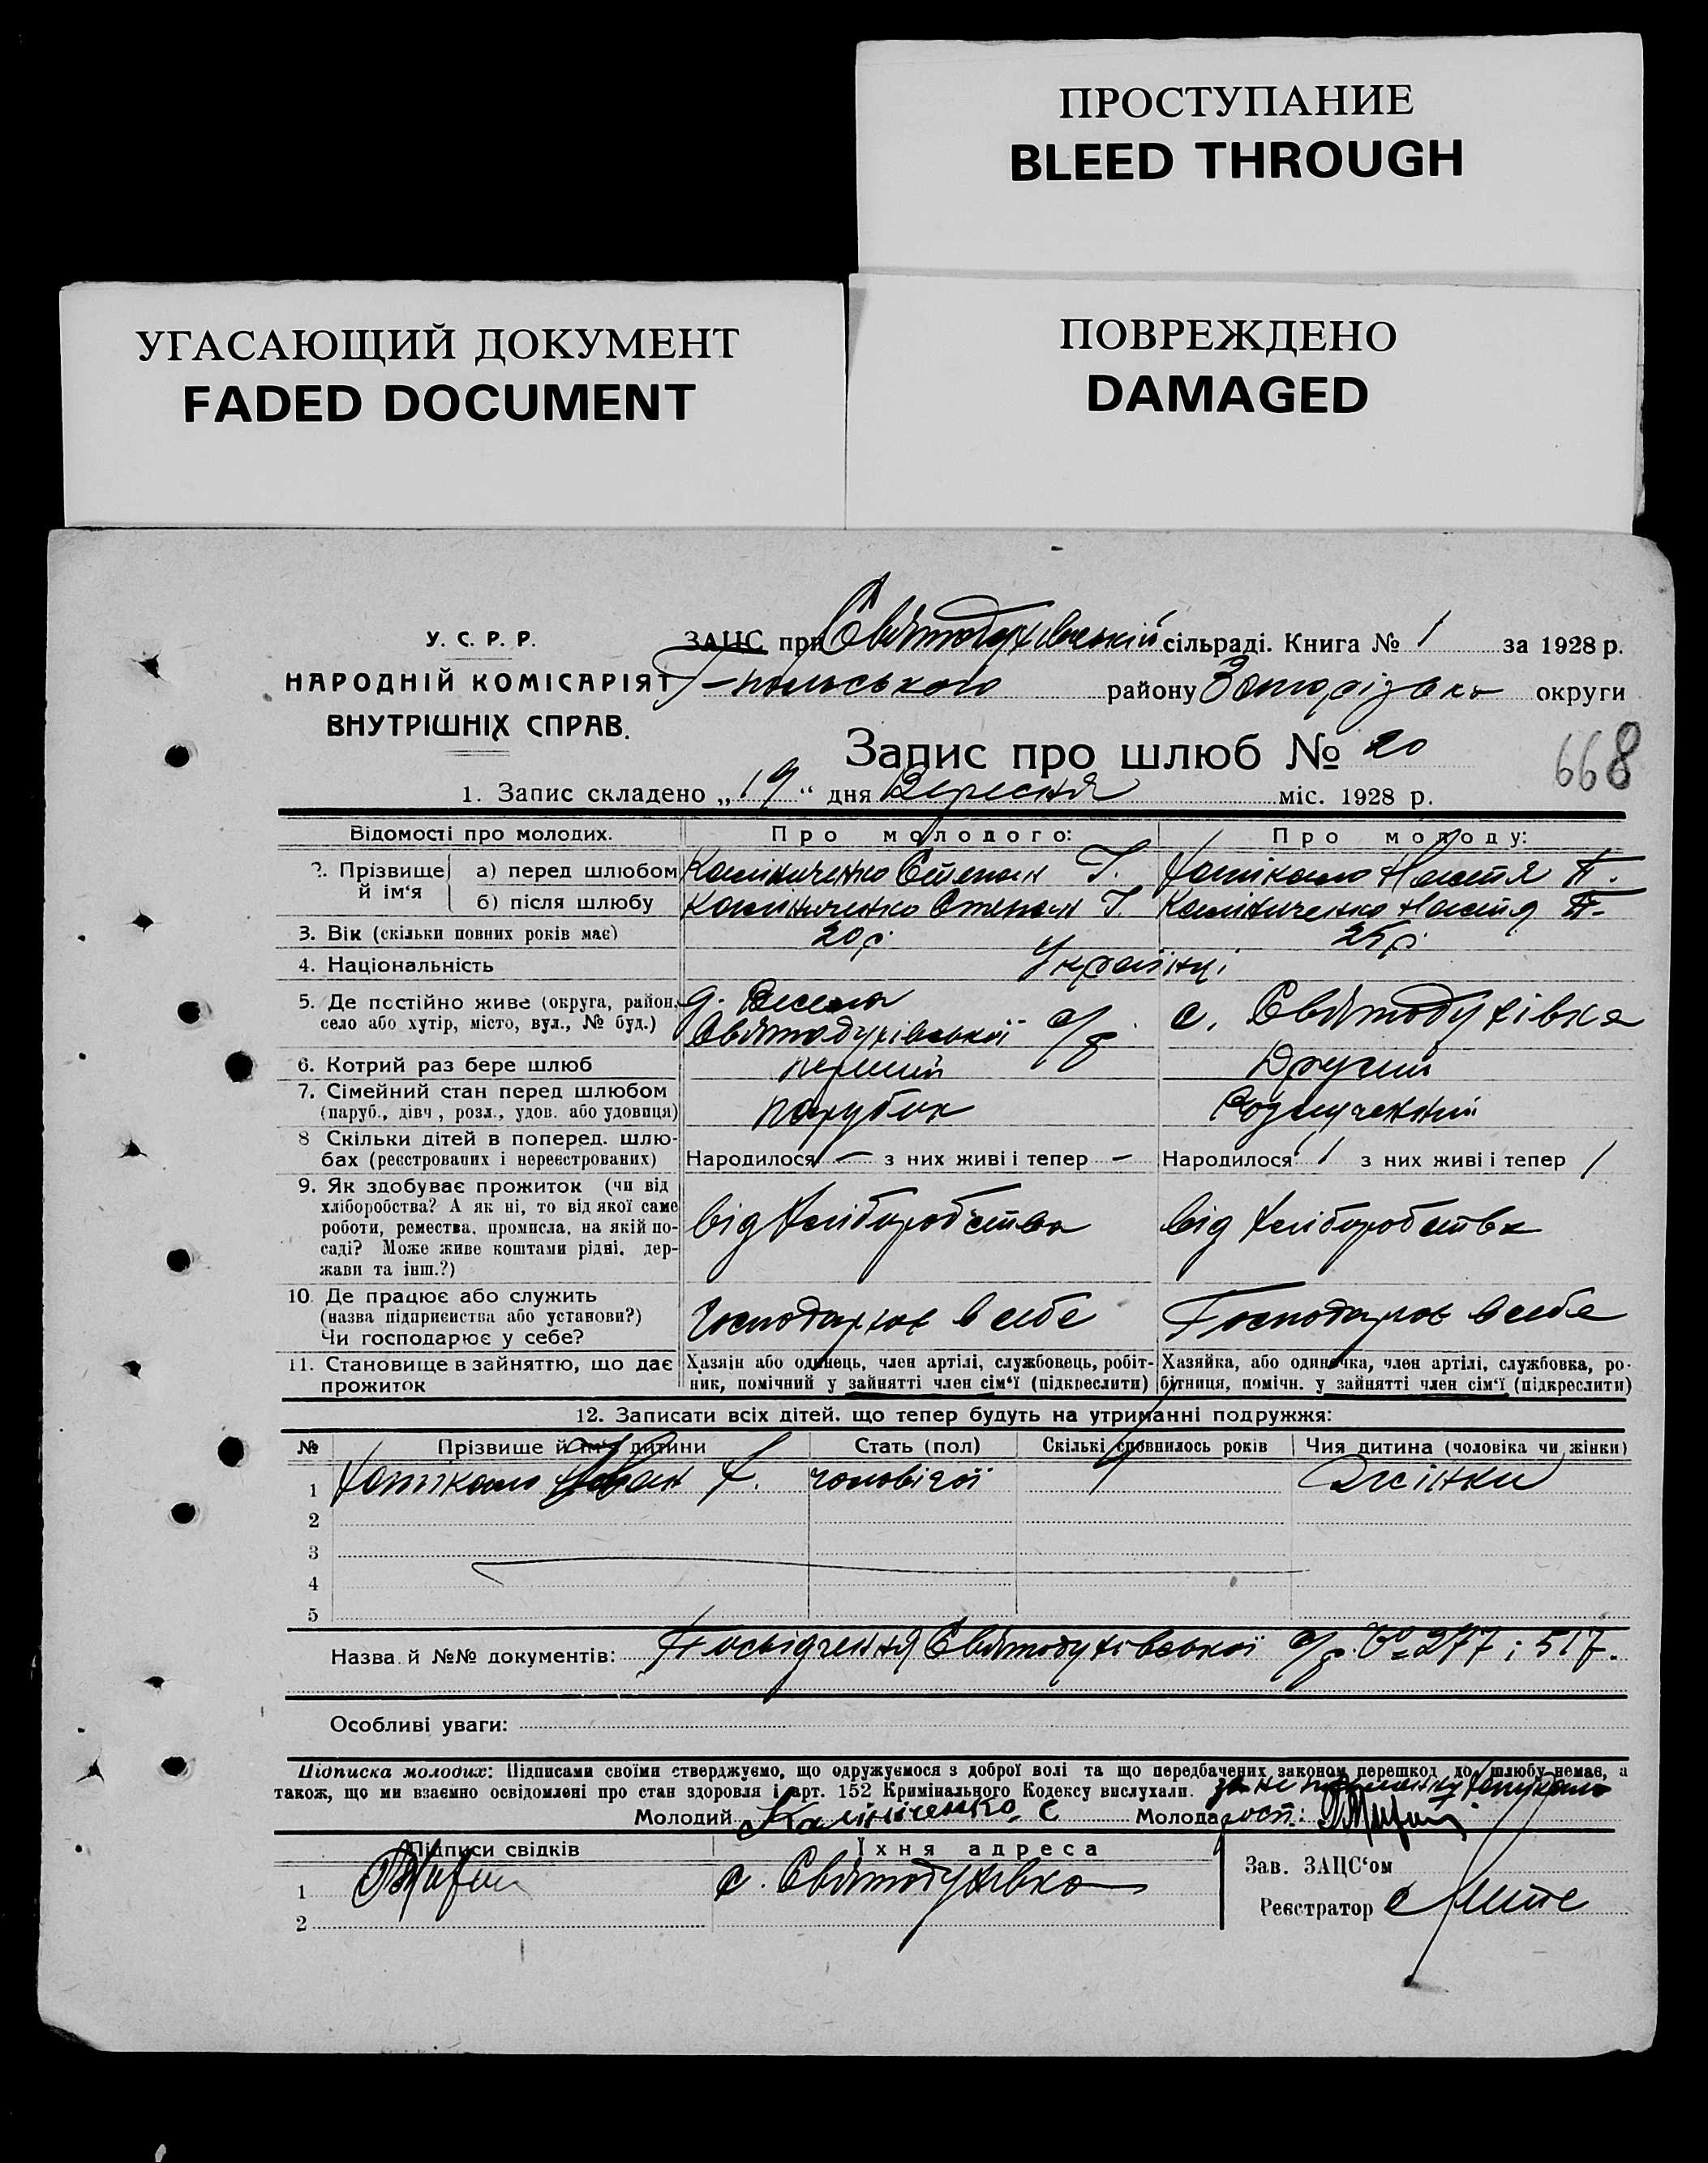 ПРОСТУПАНИЕ
BLEED THROUGH
УГАСАЮЩИЙ ДОКУМЕНТ
FADED DOCUMENT
ПОВРЕЖДЕНО
DAMAGED
У. С. Р. Р.
НАРОДНІЙ КОМІСАРІЯТ
ВНУТРІШНІХ СПРАВ.
ЗАЦС при Святодухівській сільраді. Книга № 1 за 1928 р.
-польського району Запорізько округи
Запис про шлюб № 20
668
1. Запис складено „19“ дня Вересня міс. 1928 р.
Відомості про молодих. Про молодого: Про молоду:
2. Прізвище й ім'я а) перед шлюбом Калініченко Степан Т. Настя П.
б) після шлюбу Калініченко Степан Т. Калініченко Настя П.
3. Вік (скільки повних років має) 20 р. 25 р.
4. Національність Українці
5. Де постійно живе (округа, район, село або хутір, місто, вул., № буд.) д. Весела Святодухівської с/р. с. Святодухівка
6. Котрий раз бере шлюб перший Другий
7. Сімейний стан перед шлюбом (паруб., дівч., розл., удов. або удовиця) парубок Розлучений
8 Скільки дітей в поперед. шлюбах (реєстрованих і нереєстрованих) Народилося — з них живі і тепер — Народилося 1 з них живі і тепер 1
9. Як здобуває прожиток (чи від хліборобства? А як ні, то від якої саме роботи, ремества, промисла, на якій посаді? Може живе коштами рідні, держави та інш.?) від хліборобства від хліборобства
10. Де працює або служить (назва підприємства або установи?) Чи господарює у себе? Господарює в себе Господарює в себе
11. Становище в зайняттю, що дає прожиток Хазяїн або одинець, член артілі, службовець, робітник, помічний у зайнятті член сім'ї (підкреслити) Хазяйка, або одиначка, член артілі, службовка, робітниця, помічн. у зайнятті член сім'ї (підкреслити)
12. Записати всіх дітей, що тепер будуть на утриманні подружжя:
№ Прізвище й ім'я дитини Стать (пол) Скількі сповнилось років Чия дитина (чоловіка чи жінки)
1 чоловічої Жінки
2
3
4
5
Назва й №№ документів: Посвідчення Святодухівської с/р. № 277 і 517.
Особливі уваги:
Підписка молодих: Підписами своїми стверджуємо, що одружуємося з доброї волі та що передбачених законом перешкод до шлюбу немає, а
також, що ми взаємно освідомлені про стан здоровля і арт. 152 Кримінального Кодексу вислухали. за не
Молодий Калініченко С Молода
Підписи свідків Їхня адреса
Зав. ЗАЦС'ом
1 с. Святодухівка
Реєстратор
2